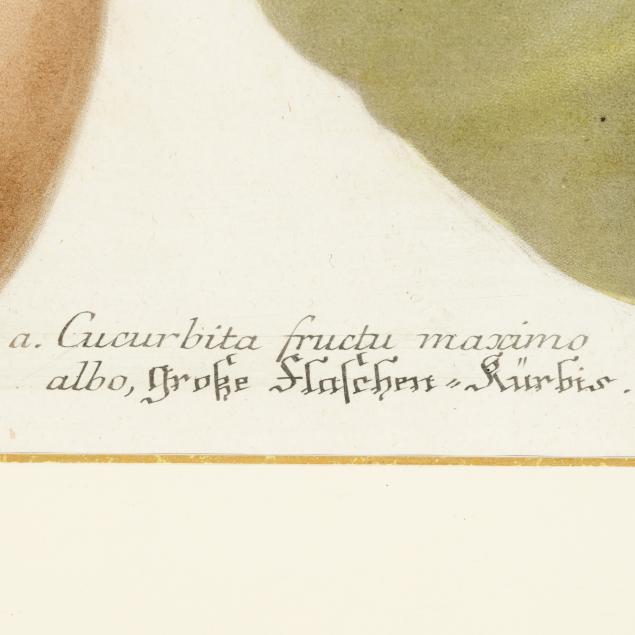 a. Cucurbita fructu maximo
albo, große Flaschen-Kürbis.